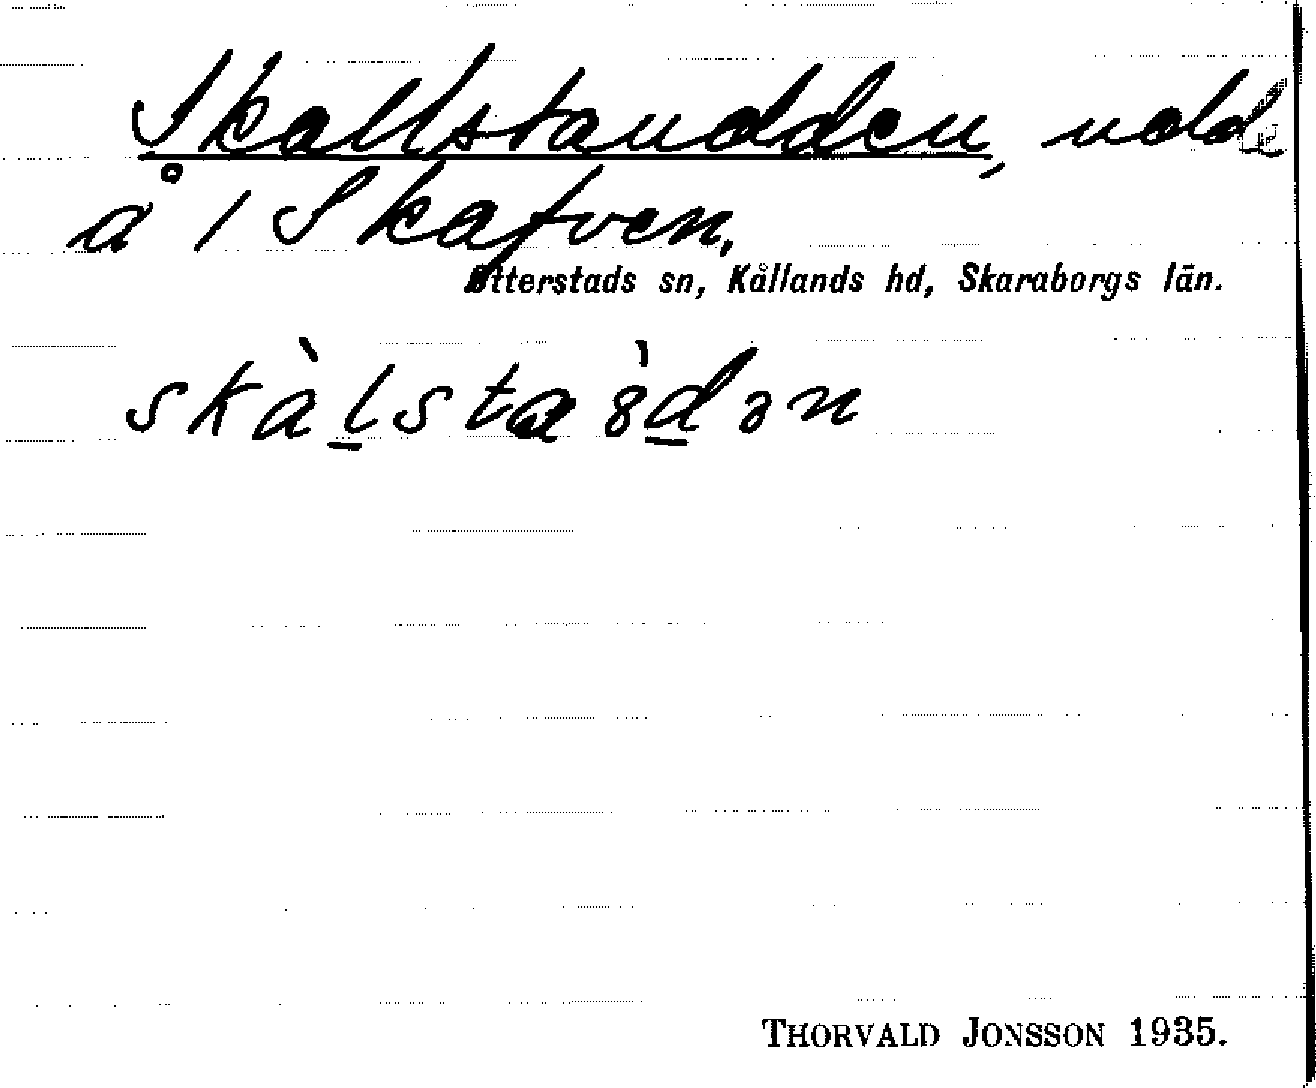 Skallstaudden, udd
å / Skafven.
Otterstads sn, Kållands hd, Skaraborgs län.
skàlsta ȣ̀dən
THORVALD JONSSON 1935.